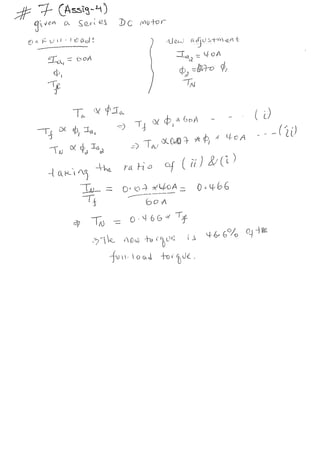 # 7 (Assig-4)
given a series DC motor
@ Full-load:
Ia₁ = 60A
Φ₁
Tf
New adjustment
Ia₂ = 40A
Φ₂ = 0.70 Φ₁
TN
Ta ∝ ΦIa
Tf ∝ Φ₁ Ia₁ ⇒ Tf ∝ Φ₁ * 60A - - - (i)
TN ∝ Φ₂ Ia₂ ⇒ TN ∝ 0.07 * Φ₁ * 40A - - - (ii)
taking the ratio of (ii) & (i)
TN / Tf = 0.07 * 40A / 60A = 0.466
⇒ TN = 0.466 * Tf
⇒ The new torque is 46.6% of the
full-load torque.